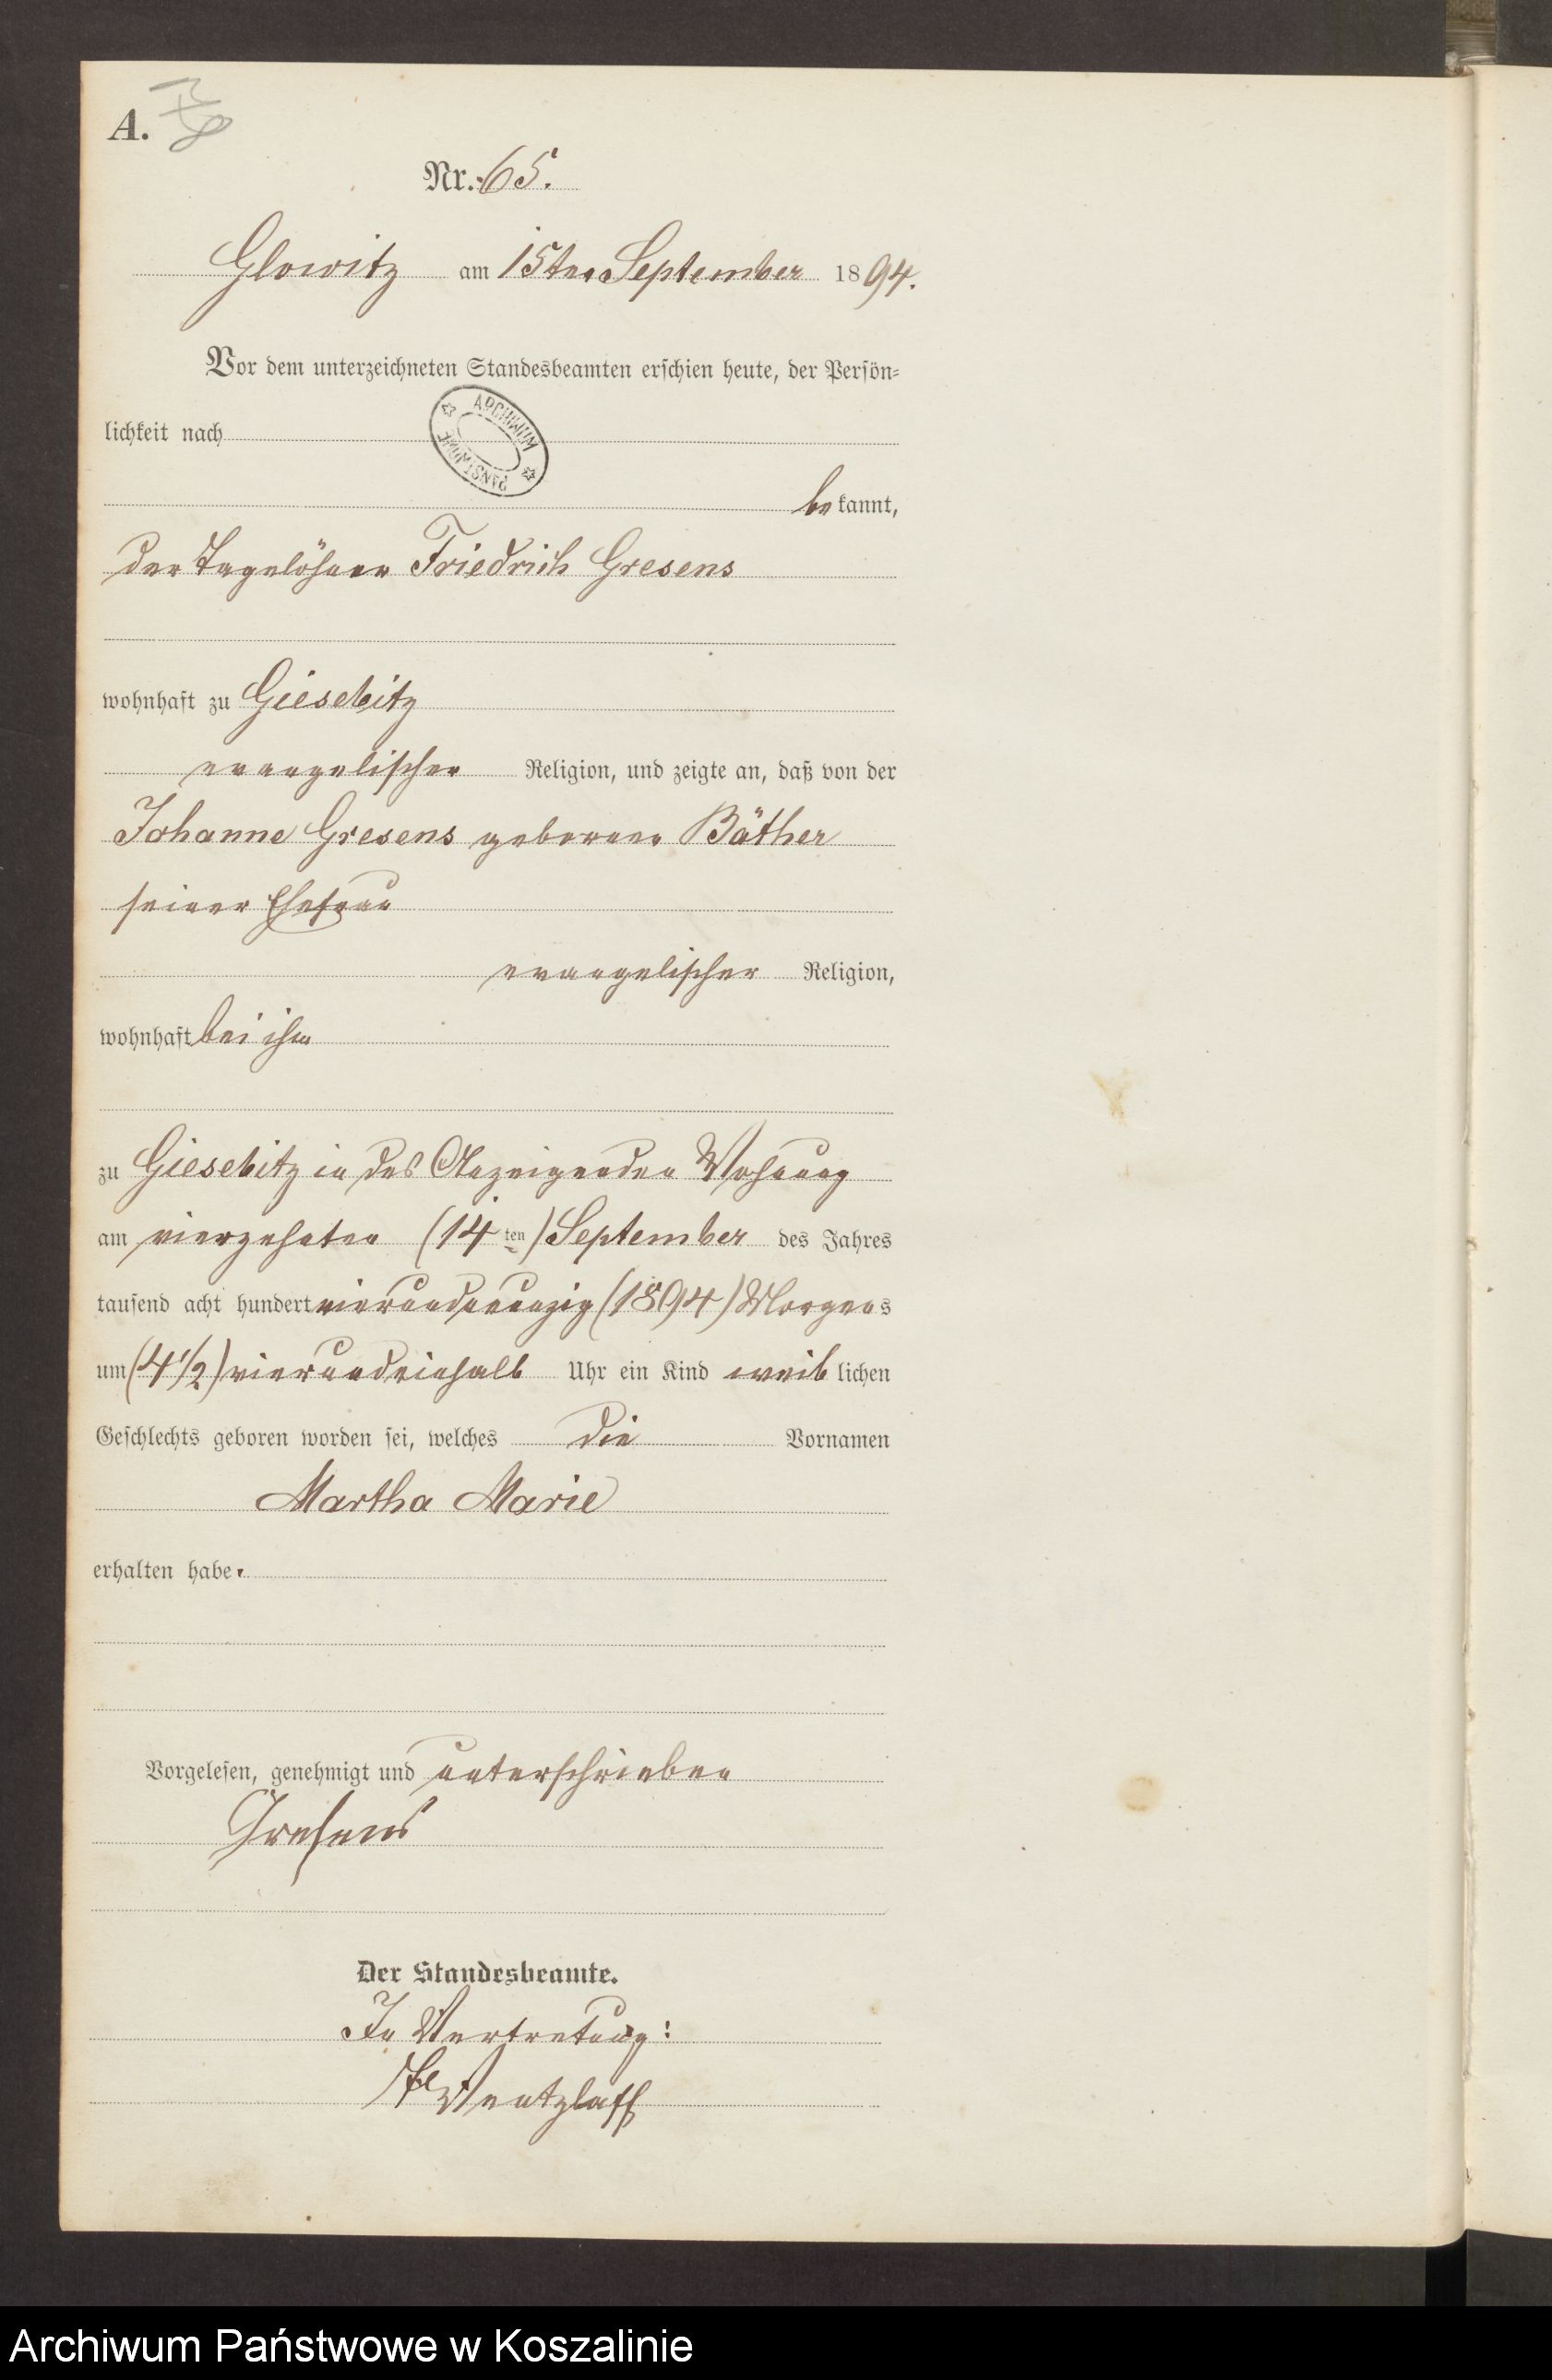 A.
Nr. 65.
Glowitz am 15ten September 1894.
Vor dem unterzeichneten Standesbeamten erschien heute, der Persön=
lichkeit nach
ARCHIWUM PAŃSTWOWE
bekannt,
der Tagelöhner Friedrich Gresens
wohnhaft zu Giesebitz
evangelischer Religion, und zeigte an, daß von der
Johanne Gresens geborene Bäther
seiner Ehefrau
evangelischer Religion,
wohnhaft bei ihm
zu Giesebitz in des Anzeigenden Wohnung
am vierzehnten (14ten) September des Jahres
tausend acht hundert vierundneunzig (1894) Morgens
um (4 1/2) vierundeinhalb Uhr ein Kind weiblichen
Geschlechts geboren worden sei, welches die Vornamen
Martha Marie
erhalten habe.
Vorgelesen, genehmigt und unterschrieben
Gresens
Der Standesbeamte.
In Vertretung:
Wentzlaff
Archiwum Państwowe w Koszalinie